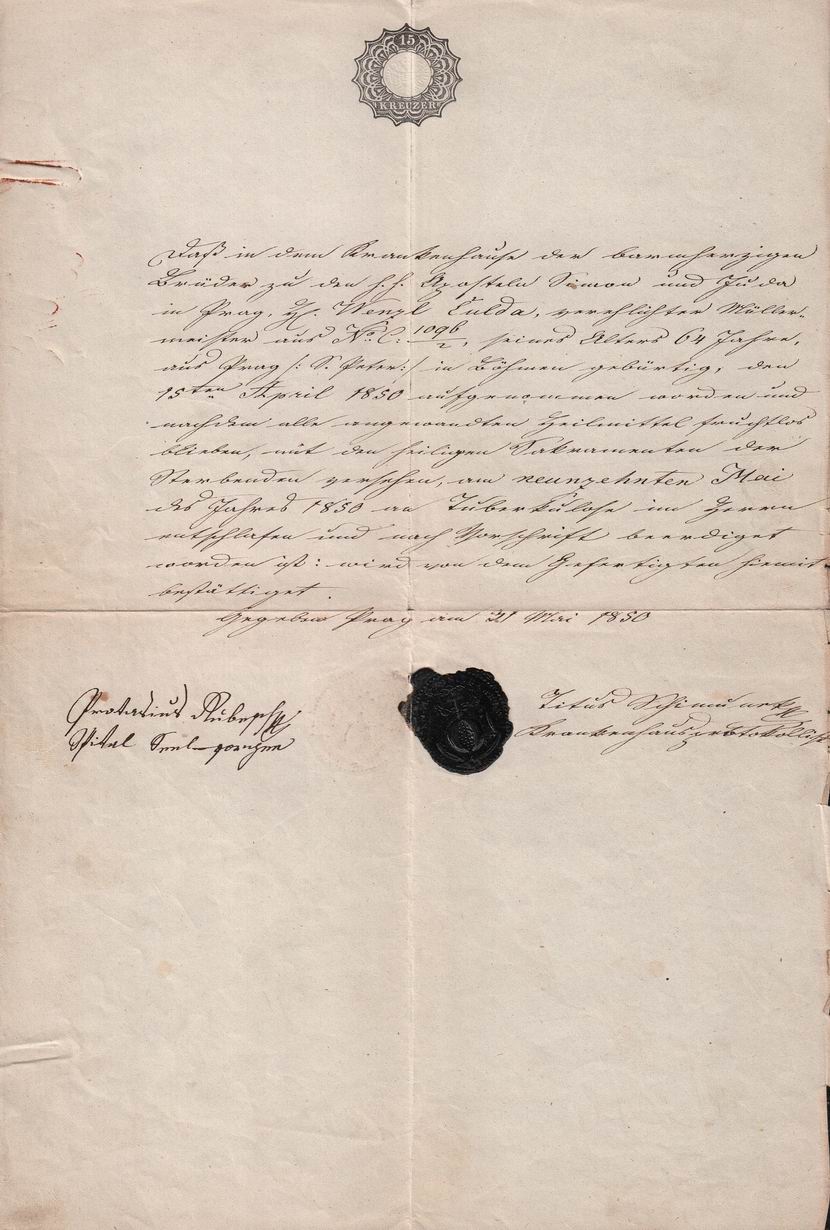 15
KREUZER
Daß in dem Krankenhause der barmherzigen
Brüder zu den h.h. Aposteln Simon und Juda
in Prag, H. Wenzl Tulda, verehlichter Müller-
meister aus No. C. 1096/2, seines Alters 64 Jahre,
aus Prag /: S. Peter :/ in Böhmen gebürtig, den
15ten April 1850 aufgenommen worden und
nachdem alle angewandten Heilmittel fruchtlos
blieben, mit den heiligen Sakramenten der
Sterbenden versehen, am neunzehnten Mai
des Jahres 1850 an Tuberkulose im Herrn
entschlafen und nach Vorschrift beerdiget
worden ist: wird von dem Gefertigten hiemit
bestättiget.
Gegeben Prag am 21 Mai 1850
Protasius
Spital
Titus
Krankenhausprotokollist